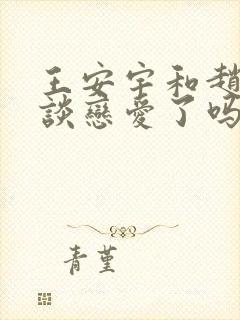 王安宇和趙
談戀愛了嗎
青堇